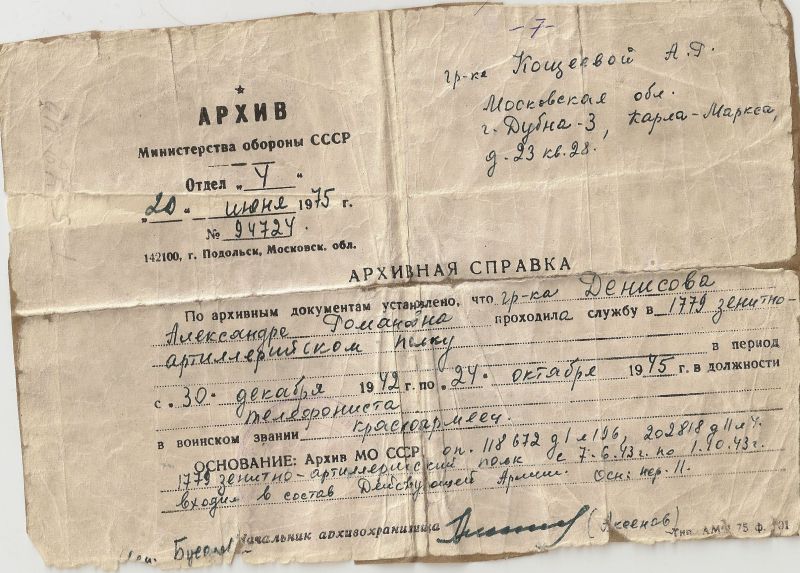 -7-
гр-ке Кощеевой А.Г.
Московская обл.
г. Дубна-3, Карла-Маркса,
д. 23 кв. 28.
АРХИВ
Министерства обороны СССР
Отдел „ У “
„20“ июня 1975 г.
№ 94724.
142100, г. Подольск, Московск. обл.
АРХИВНАЯ СПРАВКА
По архивным документам установлено, что гр-ка Денисова
Александре Романовна проходила службу в 1779 зенитно-
артиллерийском полку
в период
с „30“ декабря 1942 г. по „24“ октября 1945 г. в должности
телефониста
в воинском звании красноармеец.
ОСНОВАНИЕ: Архив МО СССР оп. 118672 д 1 л 196, 202818 д 11 л 4.
1779 зенитно-артиллерийский полк с 7.6.43г. по 1.10.43г.
входил в состав Действующей Армии. Осн: пер. 11.
Начальник архивохранилища (Аксенов)
75 ф.